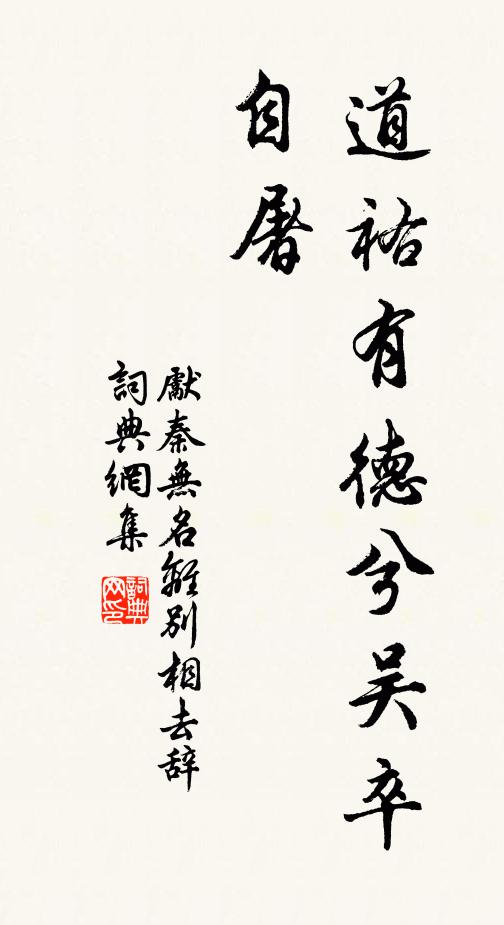 道祐有德兮吴卒
自屠
獻秦無名離別相去辞
詞典網集
詞典
网印